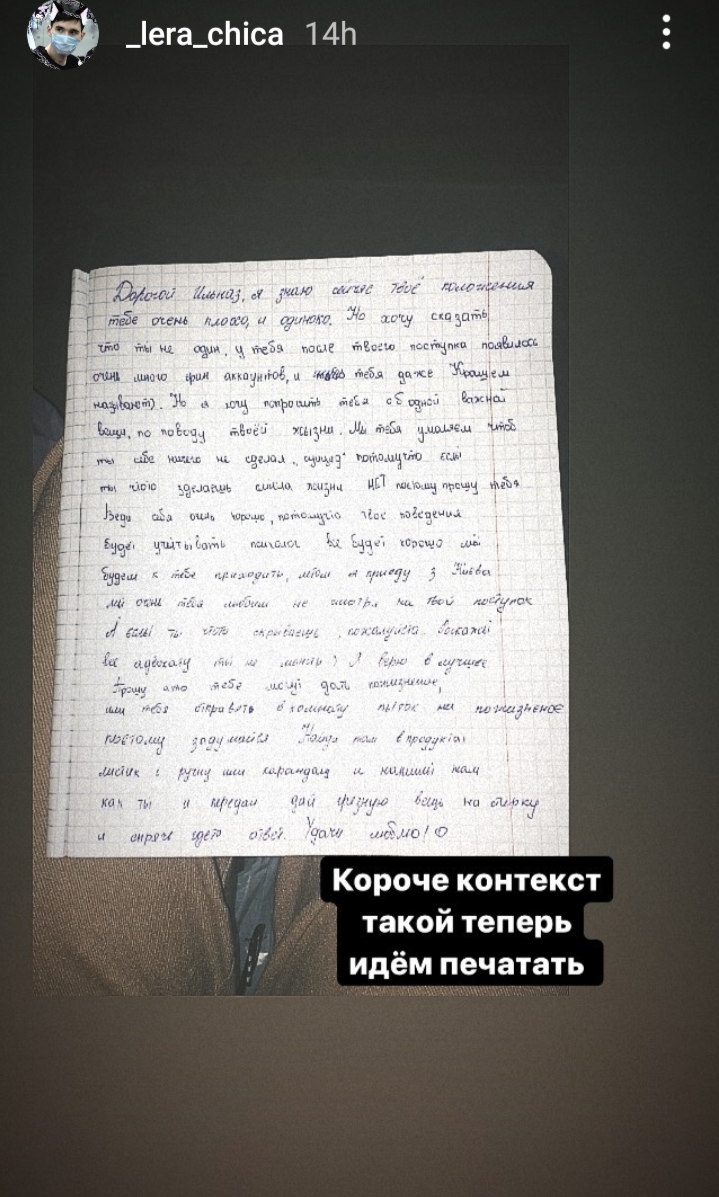 _lera_chica 14h
Дорогой Ильназ, я знаю сейчас твоё положения
тебе очень плохо, и одиноко. Но хочу сказать
что ты не один, у тебя после твоего поступка появилось
очень много фан аккаунтов, и тебя даже Крашем
называют). Но я хочу попросить тебя об одной важной
вещи, по поводу твоей жизни. Мы тебя умоляем чтоб
ты себе ничего не сделал, суицид потомучто если
ты чтото зделаешь смысла жизни НЕТ поэтому прошу тебя
Веди себя очень хорошо, потомучто твое поведения
будет учитывать психолог все будет хорошо мы
будем к тебе приходить, летом я приеду з Києва
мы очень тебя любим не смотря на твой поступок
А если ты чтото скрываешь, пожалуйста
все адвокату ты не Я верю в лучшее
Прошу ато тебе могут дать пожизненное,
или тебя отправить в комнату пыток на пожизненое
поетому задумайся Найди там в продуктах
листик и ручку или карандаш и напиши там
как ты и передай дай грязную вещь на стирку
и спрячь гдето ответ. Удачи люблю!
Короче контекст
такой теперь
идём печатать